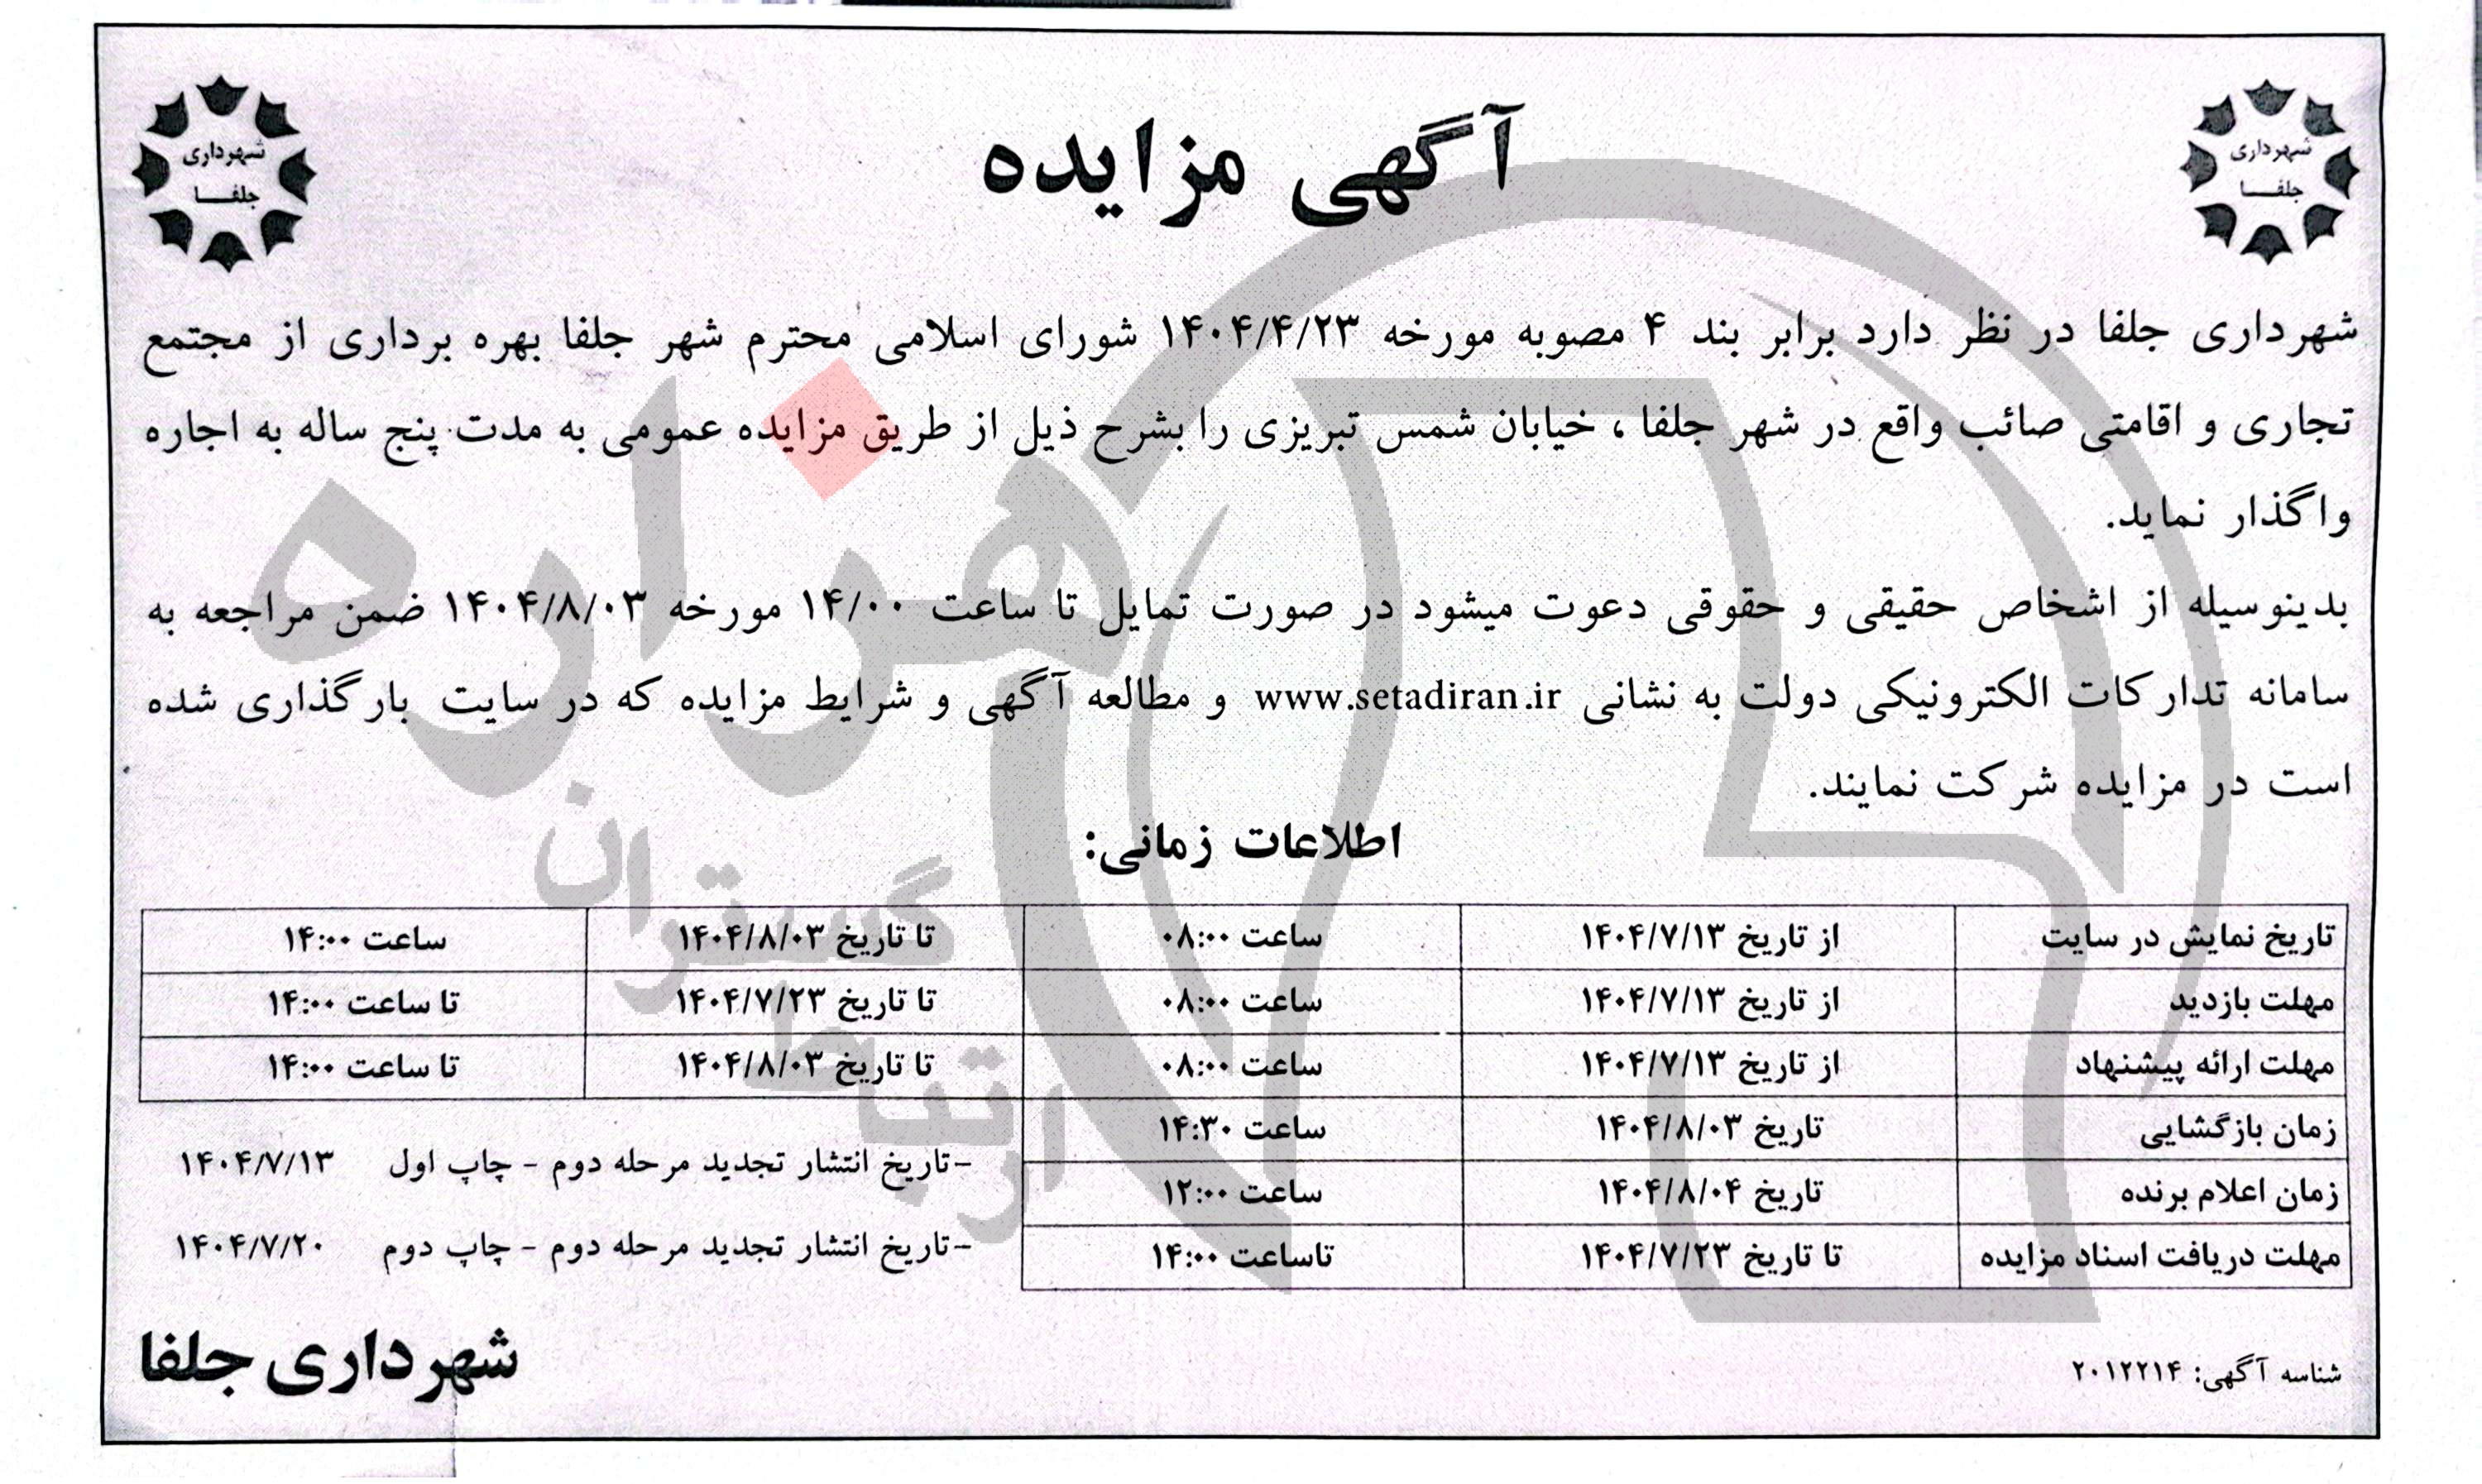 شهرداری
جلفا
شهرداری
جلفا
آگهی مزایده
شهرداری جلفا در نظر دارد برابر بند ۴ مصوبه مورخه ۱۴۰۴/۴/۲۳ شورای اسلامی محترم شهر جلفا بهره برداری از مجتمع
تجاری و اقامتی صائب واقع در شهر جلفا ، خیابان شمس تبریزی را بشرح ذیل از طریق مزایده عمومی به مدت پنج ساله به اجاره
واگذار نماید.
بدینوسیله از اشخاص حقیقی و حقوقی دعوت میشود در صورت تمایل تا ساعت ۱۴/۰۰ مورخه ۱۴۰۴/۸/۰۳ ضمن مراجعه به
سامانه تدارکات الکترونیکی دولت به نشانی www.setadiran.ir و مطالعه آگهی و شرایط مزایده که در سایت بارگذاری شده
است در مزایده شرکت نمایند.
اطلاعات زمانی:
تاریخ نمایش در سایت از تاریخ ۱۴۰۴/۷/۱۳ ساعت ۰۸:۰۰ تا تاریخ ۱۴۰۴/۸/۰۳ ساعت ۱۴:۰۰
مهلت بازدید از تاریخ ۱۴۰۴/۷/۱۳ ساعت ۰۸:۰۰ تا تاریخ ۱۴۰۴/۷/۲۳ تا ساعت ۱۴:۰۰
مهلت ارائه پیشنهاد از تاریخ ۱۴۰۴/۷/۱۳ ساعت ۰۸:۰۰ تا تاریخ ۱۴۰۴/۸/۰۳ تا ساعت ۱۴:۰۰
زمان بازگشایی تاریخ ۱۴۰۴/۸/۰۳ ساعت ۱۴:۳۰
زمان اعلام برنده تاریخ ۱۴۰۴/۸/۰۴ ساعت ۱۲:۰۰
مهلت دریافت اسناد مزایده تا تاریخ ۱۴۰۴/۷/۲۳ تاساعت ۱۴:۰۰
-تاریخ انتشار تجدید مرحله دوم - چاپ اول ۱۴۰۴/۷/۱۳
-تاریخ انتشار تجدید مرحله دوم - چاپ دوم ۱۴۰۴/۷/۲۰
شناسه آگهی: ۲۰۱۲۲۱۴
شهرداری جلفا
هزاره
ارتباط گستران